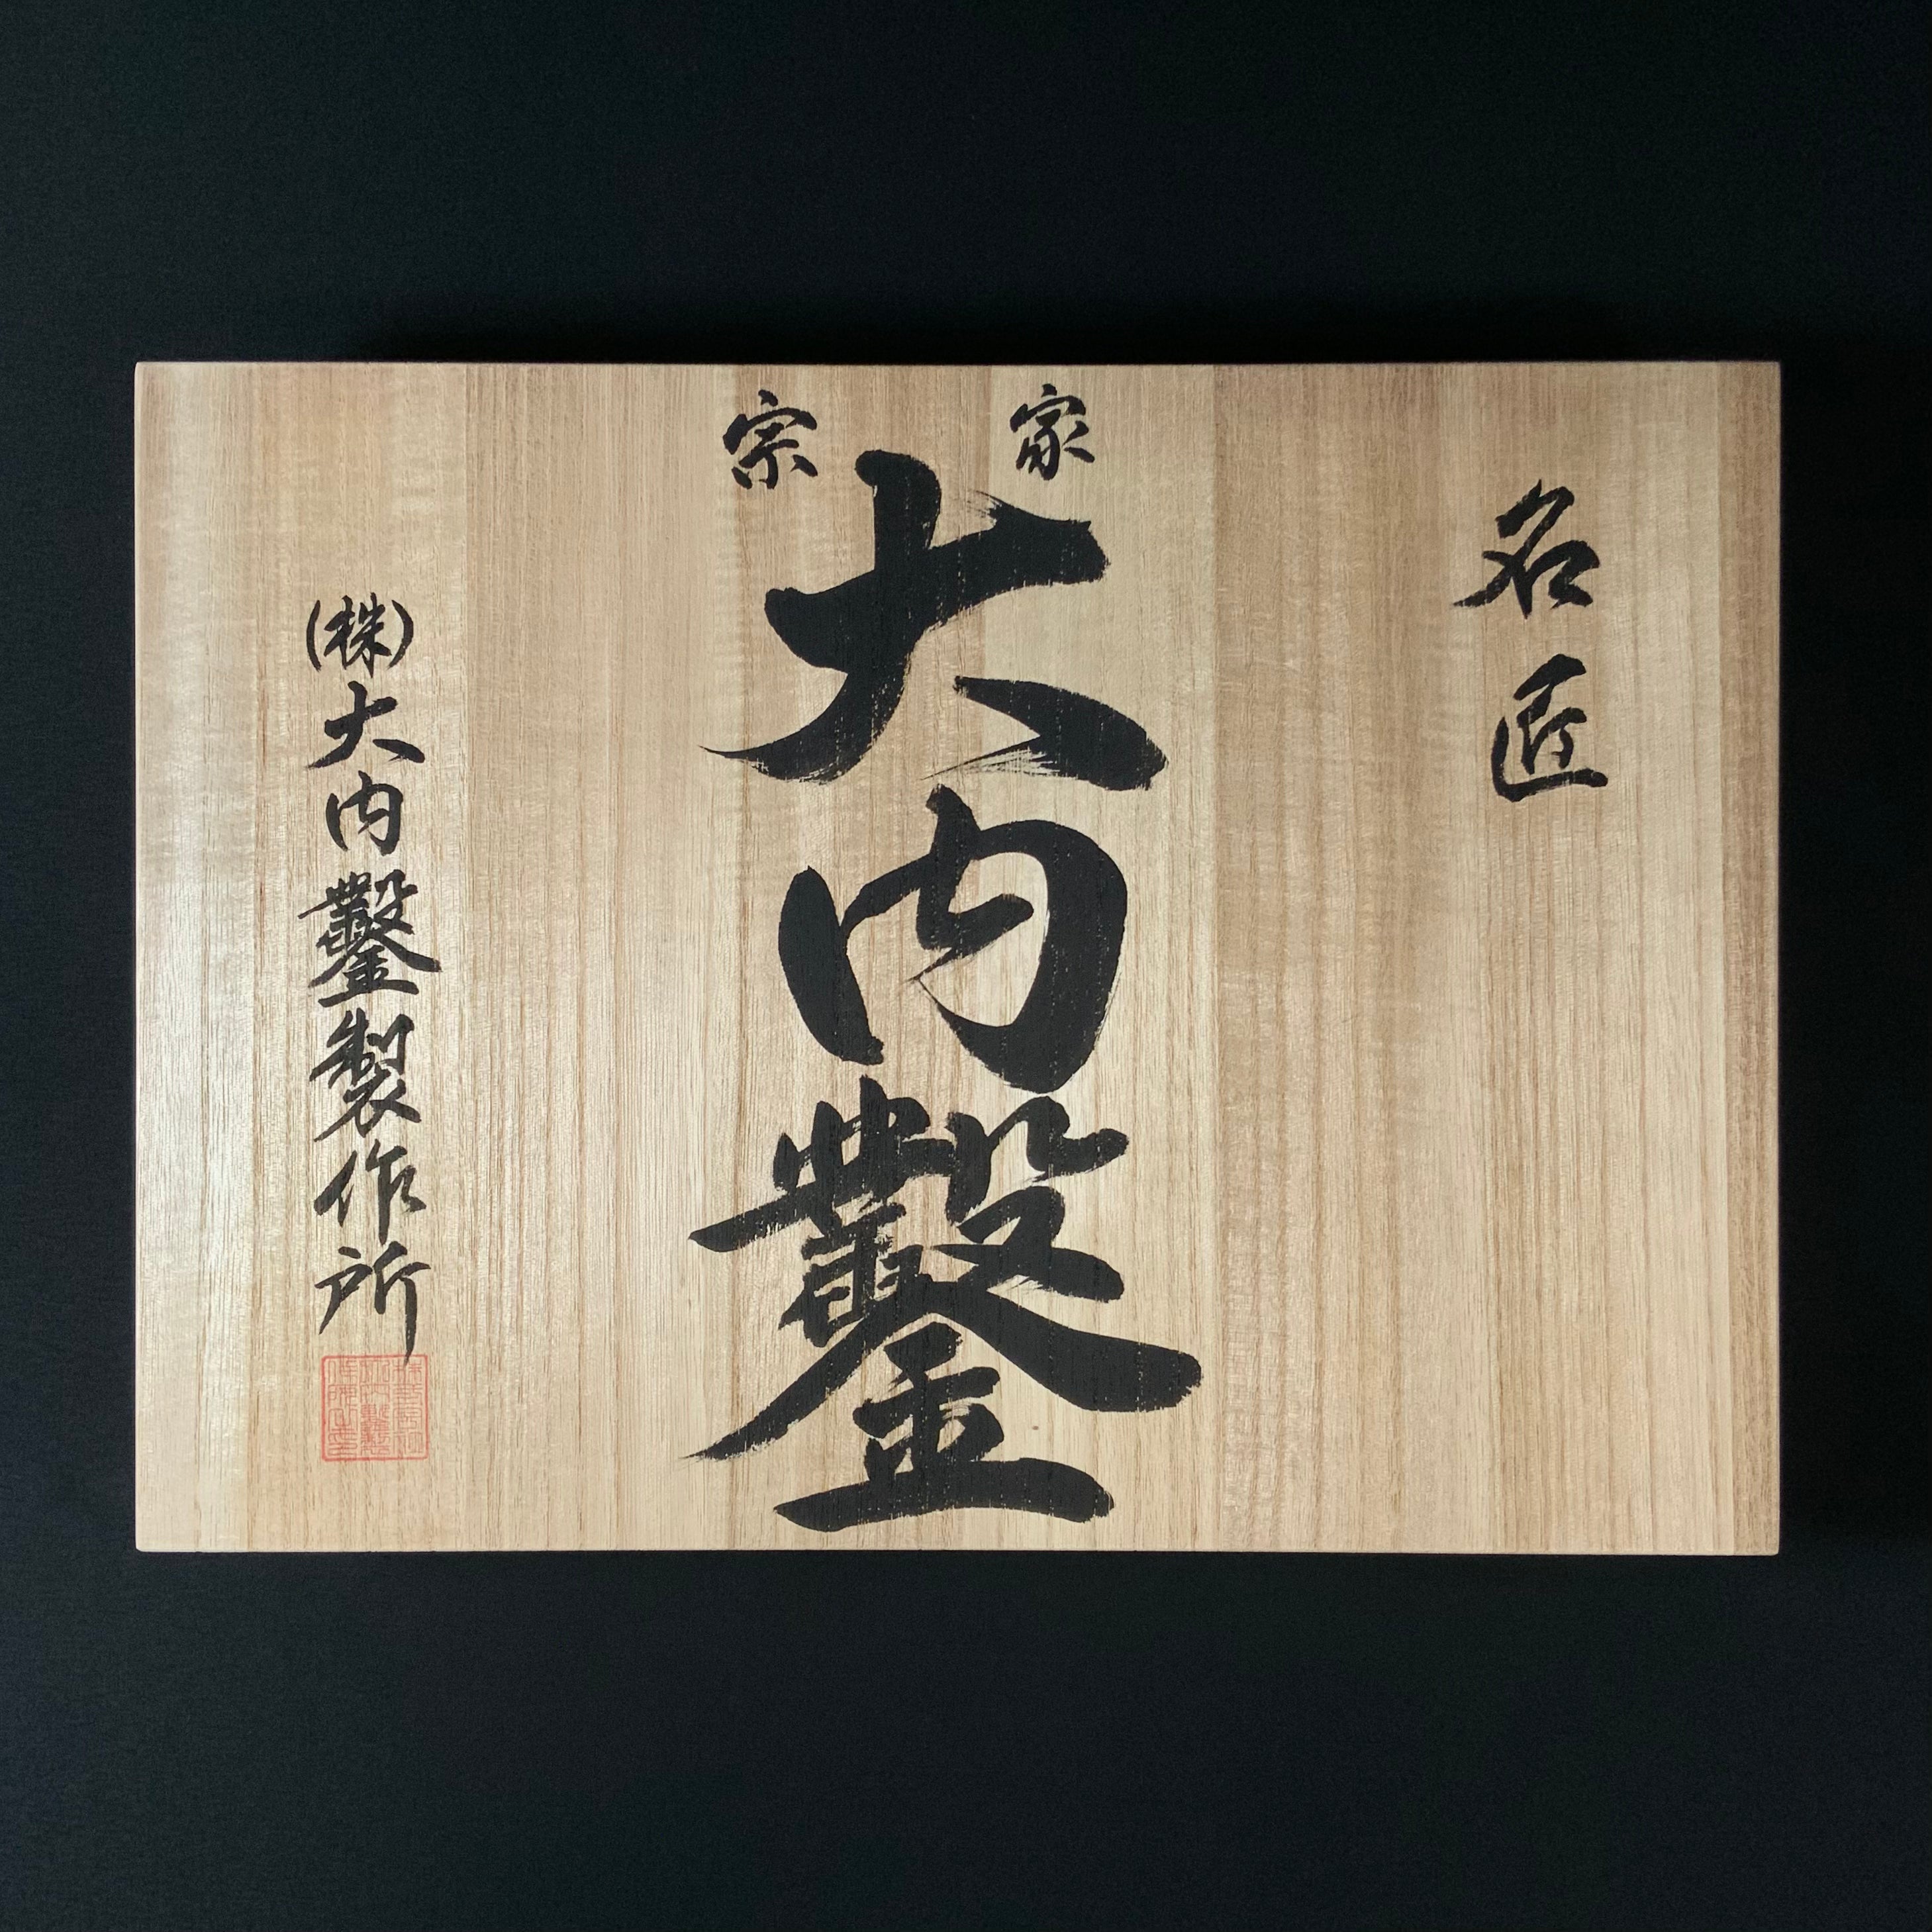 名匠
宗家
大内鑿
(株)大内鑿製作所